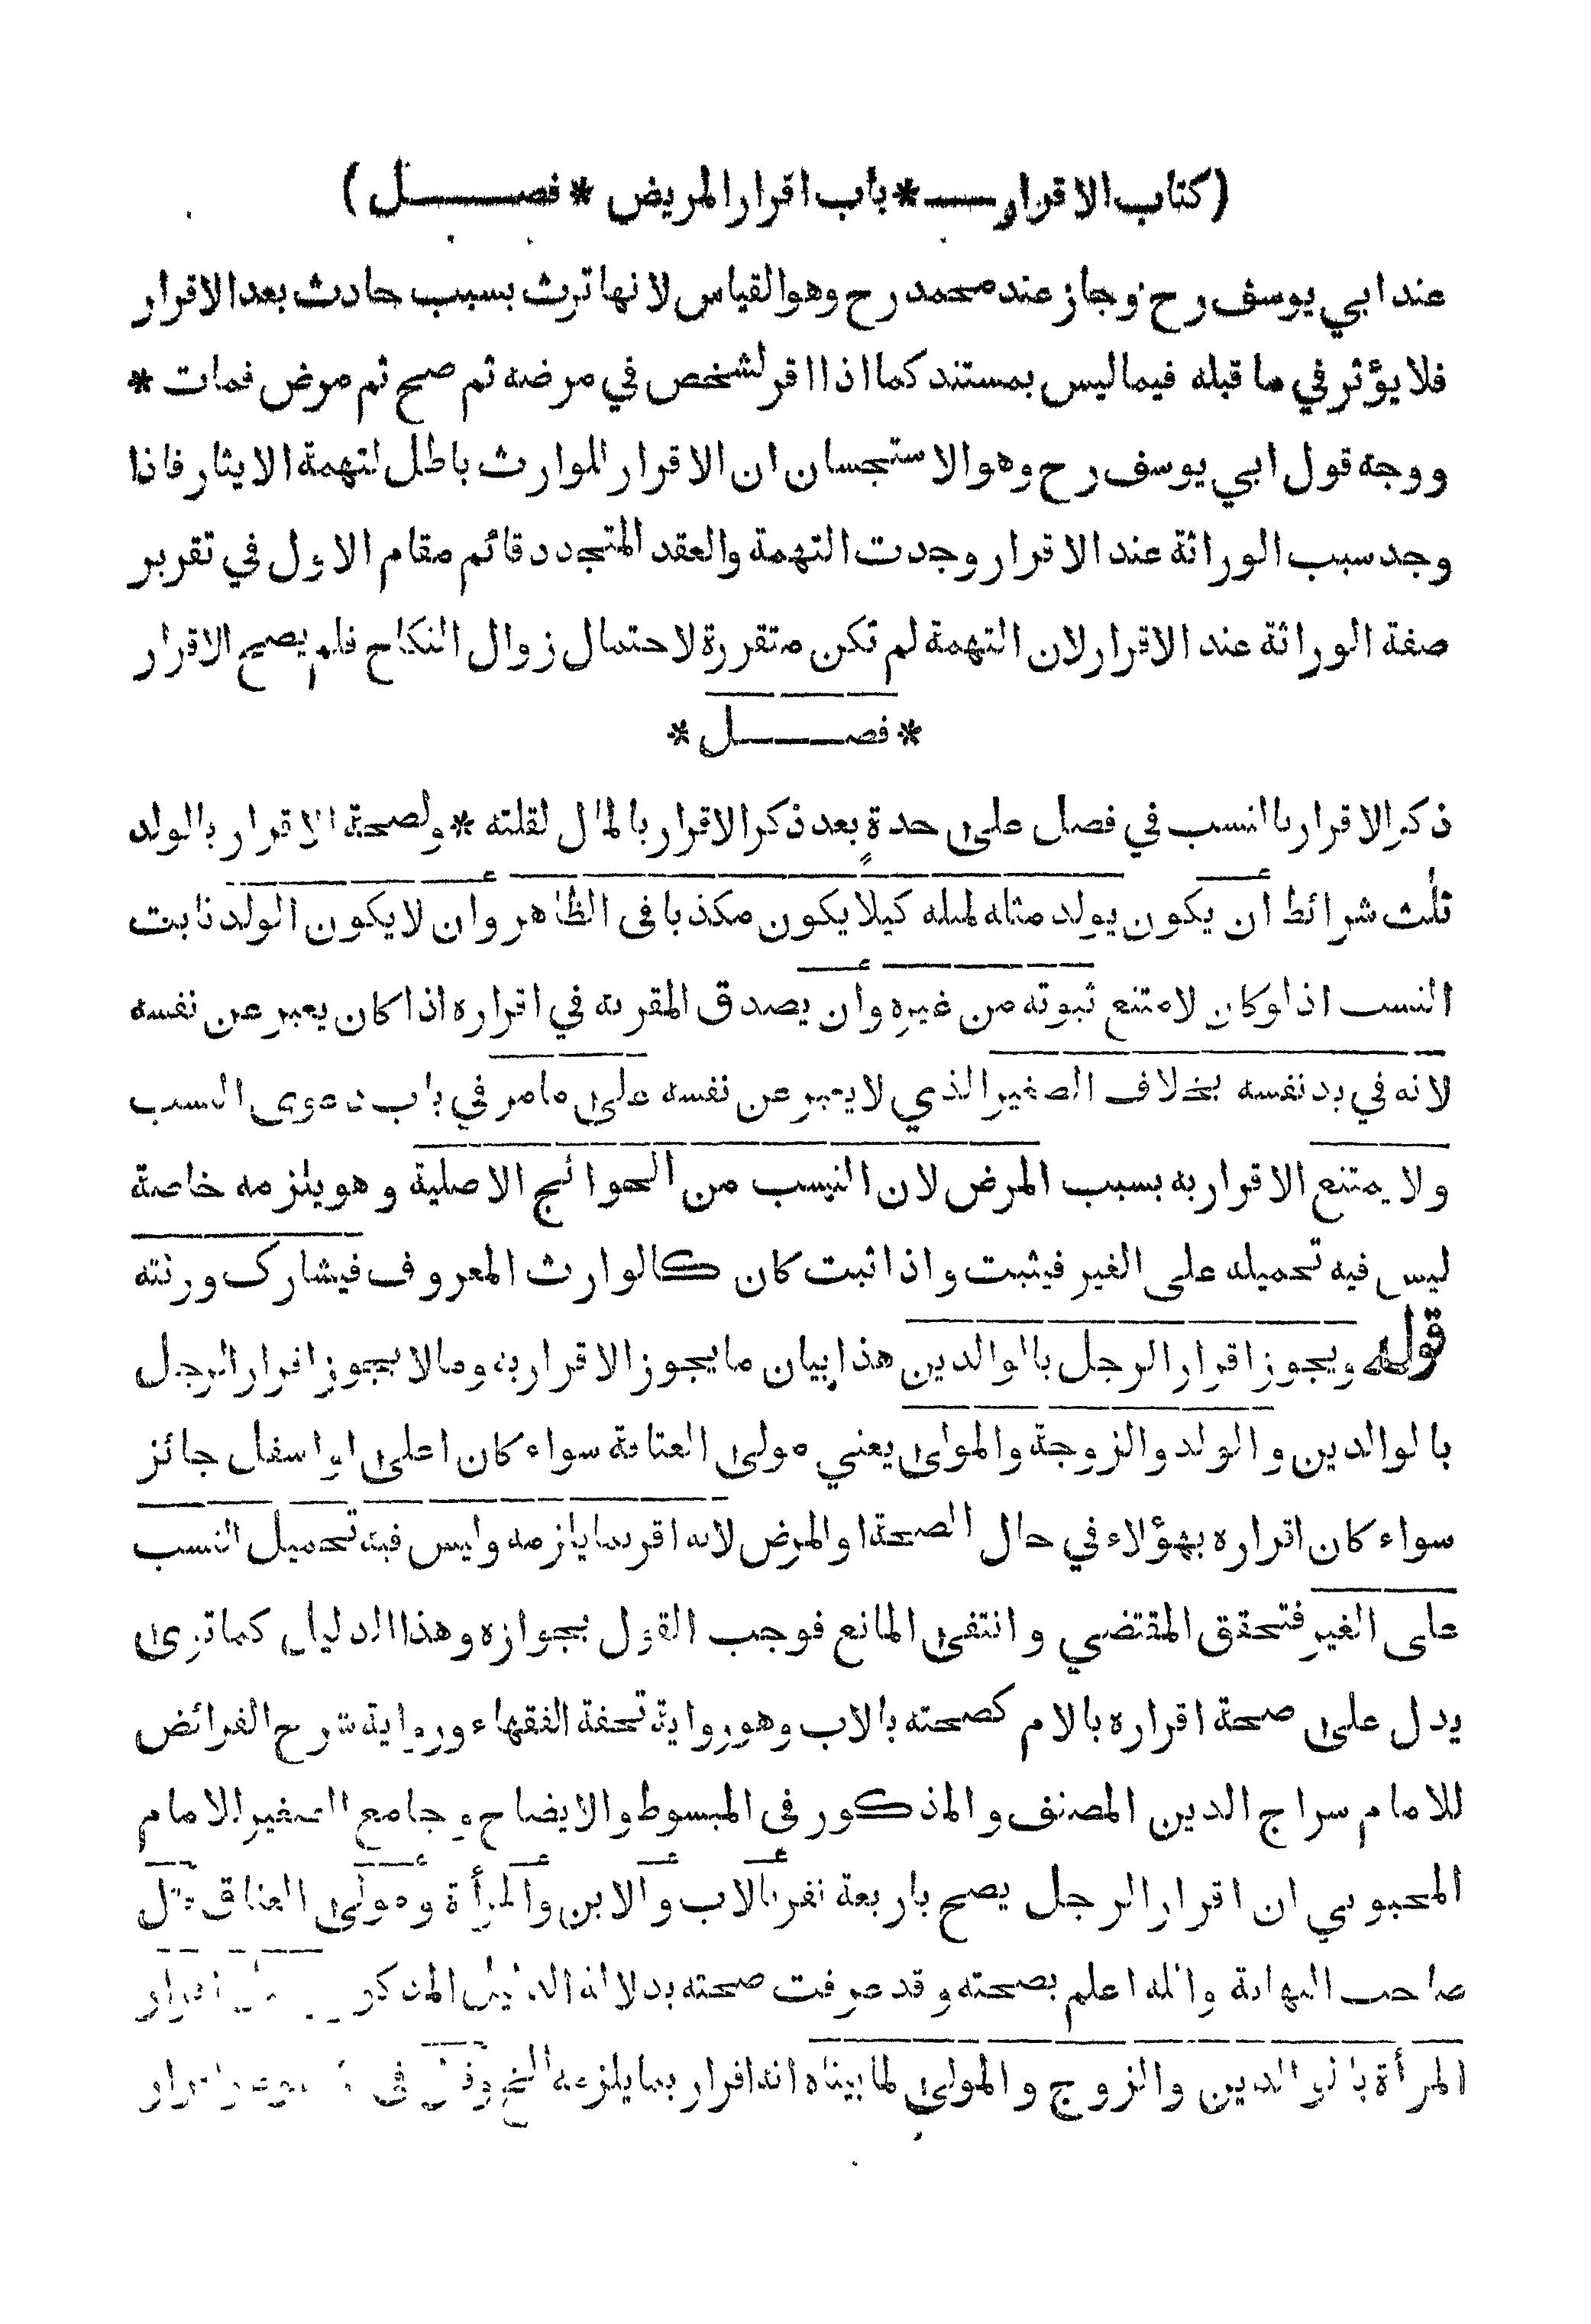 (كتاب الاقرار * باب اقرار المريض * فصل)
عند ابي يوسف رح وجاز عند محمد رح وهو القياس لانها ترث بسبب حادث بعد الاقرار
فلا يؤثر في ما قبله فيما ليس بمستند كما اذا اقر لشخص في مرضه ثم صح ثم مرض فمات *
ووجه قول ابي يوسف رح وهو الاستحسان ان الاقرار للوارث باطل لتهمة الايثار فاذا
وجد سبب الوراثة عند الاقرار وجدت التهمة والعقد المتجدد قائم مقام الاول في تقرير
صفة الوراثة عند الاقرار لان التهمة لم تكن متقررة لاحتمال زوال النكاح فلم يصح الاقرار
* فصل *
ذكر الاقرار بالنسب في فصل على حدة بعد ذكر الاقرار بالمال لقلته * ولصحة الاقرار بالولد
ثلث شرائط ان يكون يولد مثله لمثله كيلا يكون مكذبا فى الظاهر وان لا يكون الولد ثابت
النسب اذ لو كان لامتنع ثبوته من غيره وان يصدق المقر به في اقراره اذا كان يعبر عن نفسه
لانه في يد نفسه بخلاف الصغير الذي لا يعبر عن نفسه على ما مر في باب دعوى النسب
ولا يمتنع الاقرار به بسبب المرض لان النسب من الحوائج الاصلية وهو يلزمه خاصة
ليس فيه تحميله على الغير فيثبت واذا ثبت كان كالوارث المعروف فيشارك ورثته
قوله ويجوز اقرار الرجل بالوالدين هذا بيان ما يجوز الاقرار به وما لا يجوز اقرار الرجل
بالوالدين والولد والزوجة والمولى يعني مولى العتاقة سواء كان اعلى او اسفل جائز
سواء كان اقراره بهؤلاء في حال الصحة او المرض لانه اقر بما يلزمه وليس فيه تحميل النسب
على الغير فتحقق المقتضي وانتفى المانع فوجب القول بجوازه وهذا الدليل كما ترى
يدل على صحة اقراره بالام كصحته بالاب وهو رواية تحفة الفقهاء ورواية شرح الفرائض
للامام سراج الدين المصنف والمذكور فى المبسوط والايضاح وجامع الصغير للامام
المحبوبي ان اقرار الرجل يصح باربعة نفر بالاب والابن والمرأة ومولى العتاق قال
صاحب النهاية والله اعلم بصحته وقد عرفت صحته بدلالة الدليل المذكور اقرار
المرأة بالوالدين والزوج والمولى لما بيناه انه اقرار بما يلزمه الخ فى